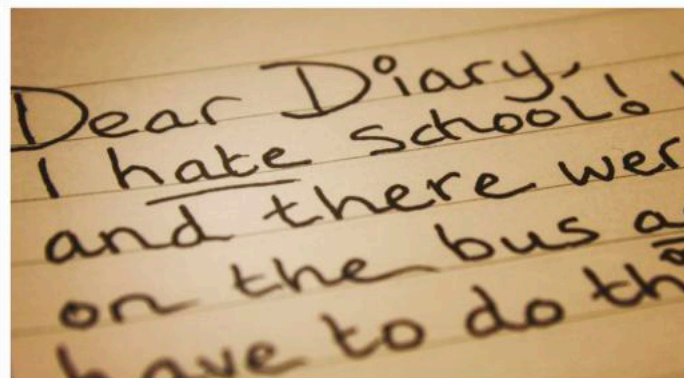 Dear Diary,
I hate school!
and there wer
on the bus
have to do th